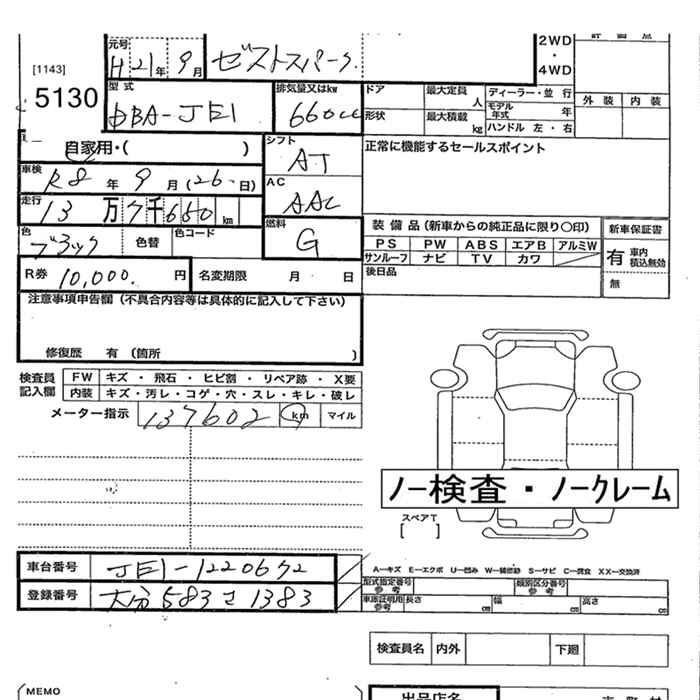 元号 H21年9月 ゼストスパーク
2WD
・
4WD
[1143]
5130
型式 DBA-JE1
排気量又はkw 660cc
ドア 最大定員 人
形状 最大積載 kg
ディーラー・並 行
モデル年式 年
ハンドル 左・右
外装 内装
自家用・( )
シフト AT
正常に機能するセールスポイント
車検 R8年9月(26日)
AC AAC
走行 13万7千650km
燃料 G
色 ブラック 色替 色コード
装備品(新車からの純正品に限り〇印)
新車保証書
PS PW ABS エアB アルミW
サンルーフ ナビ TV カワ
有 車内積込無効
無
R券 10,000.円 名変期限 月 日
後日品
注意事項申告欄(不具合内容等は具体的に記入して下さい)
修復歴 有(箇所 )
検査員記入欄
FW キズ・飛石・ヒビ割・リペア跡・X要
内装 キズ・汚レ・コゲ・穴・スレ・キレ・破レ
メーター指示 137602 km マイル
ノー検査・ノークレーム
スペアT
[ ]
車台番号 JE1-1220672
登録番号 大分583さ1383
A-キズ E-エクボ U-凹み W-補修跡 S-サビ C-腐食 XX-交換済
型式指定番号 参考 類別区分番号 参考
車庫証明用 参考 長さ cm 幅 cm 高さ cm
検査員名 内外 下廻
MEMO
出品店名